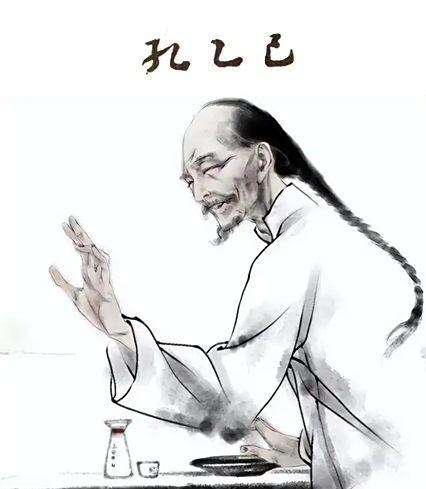 孔乙己